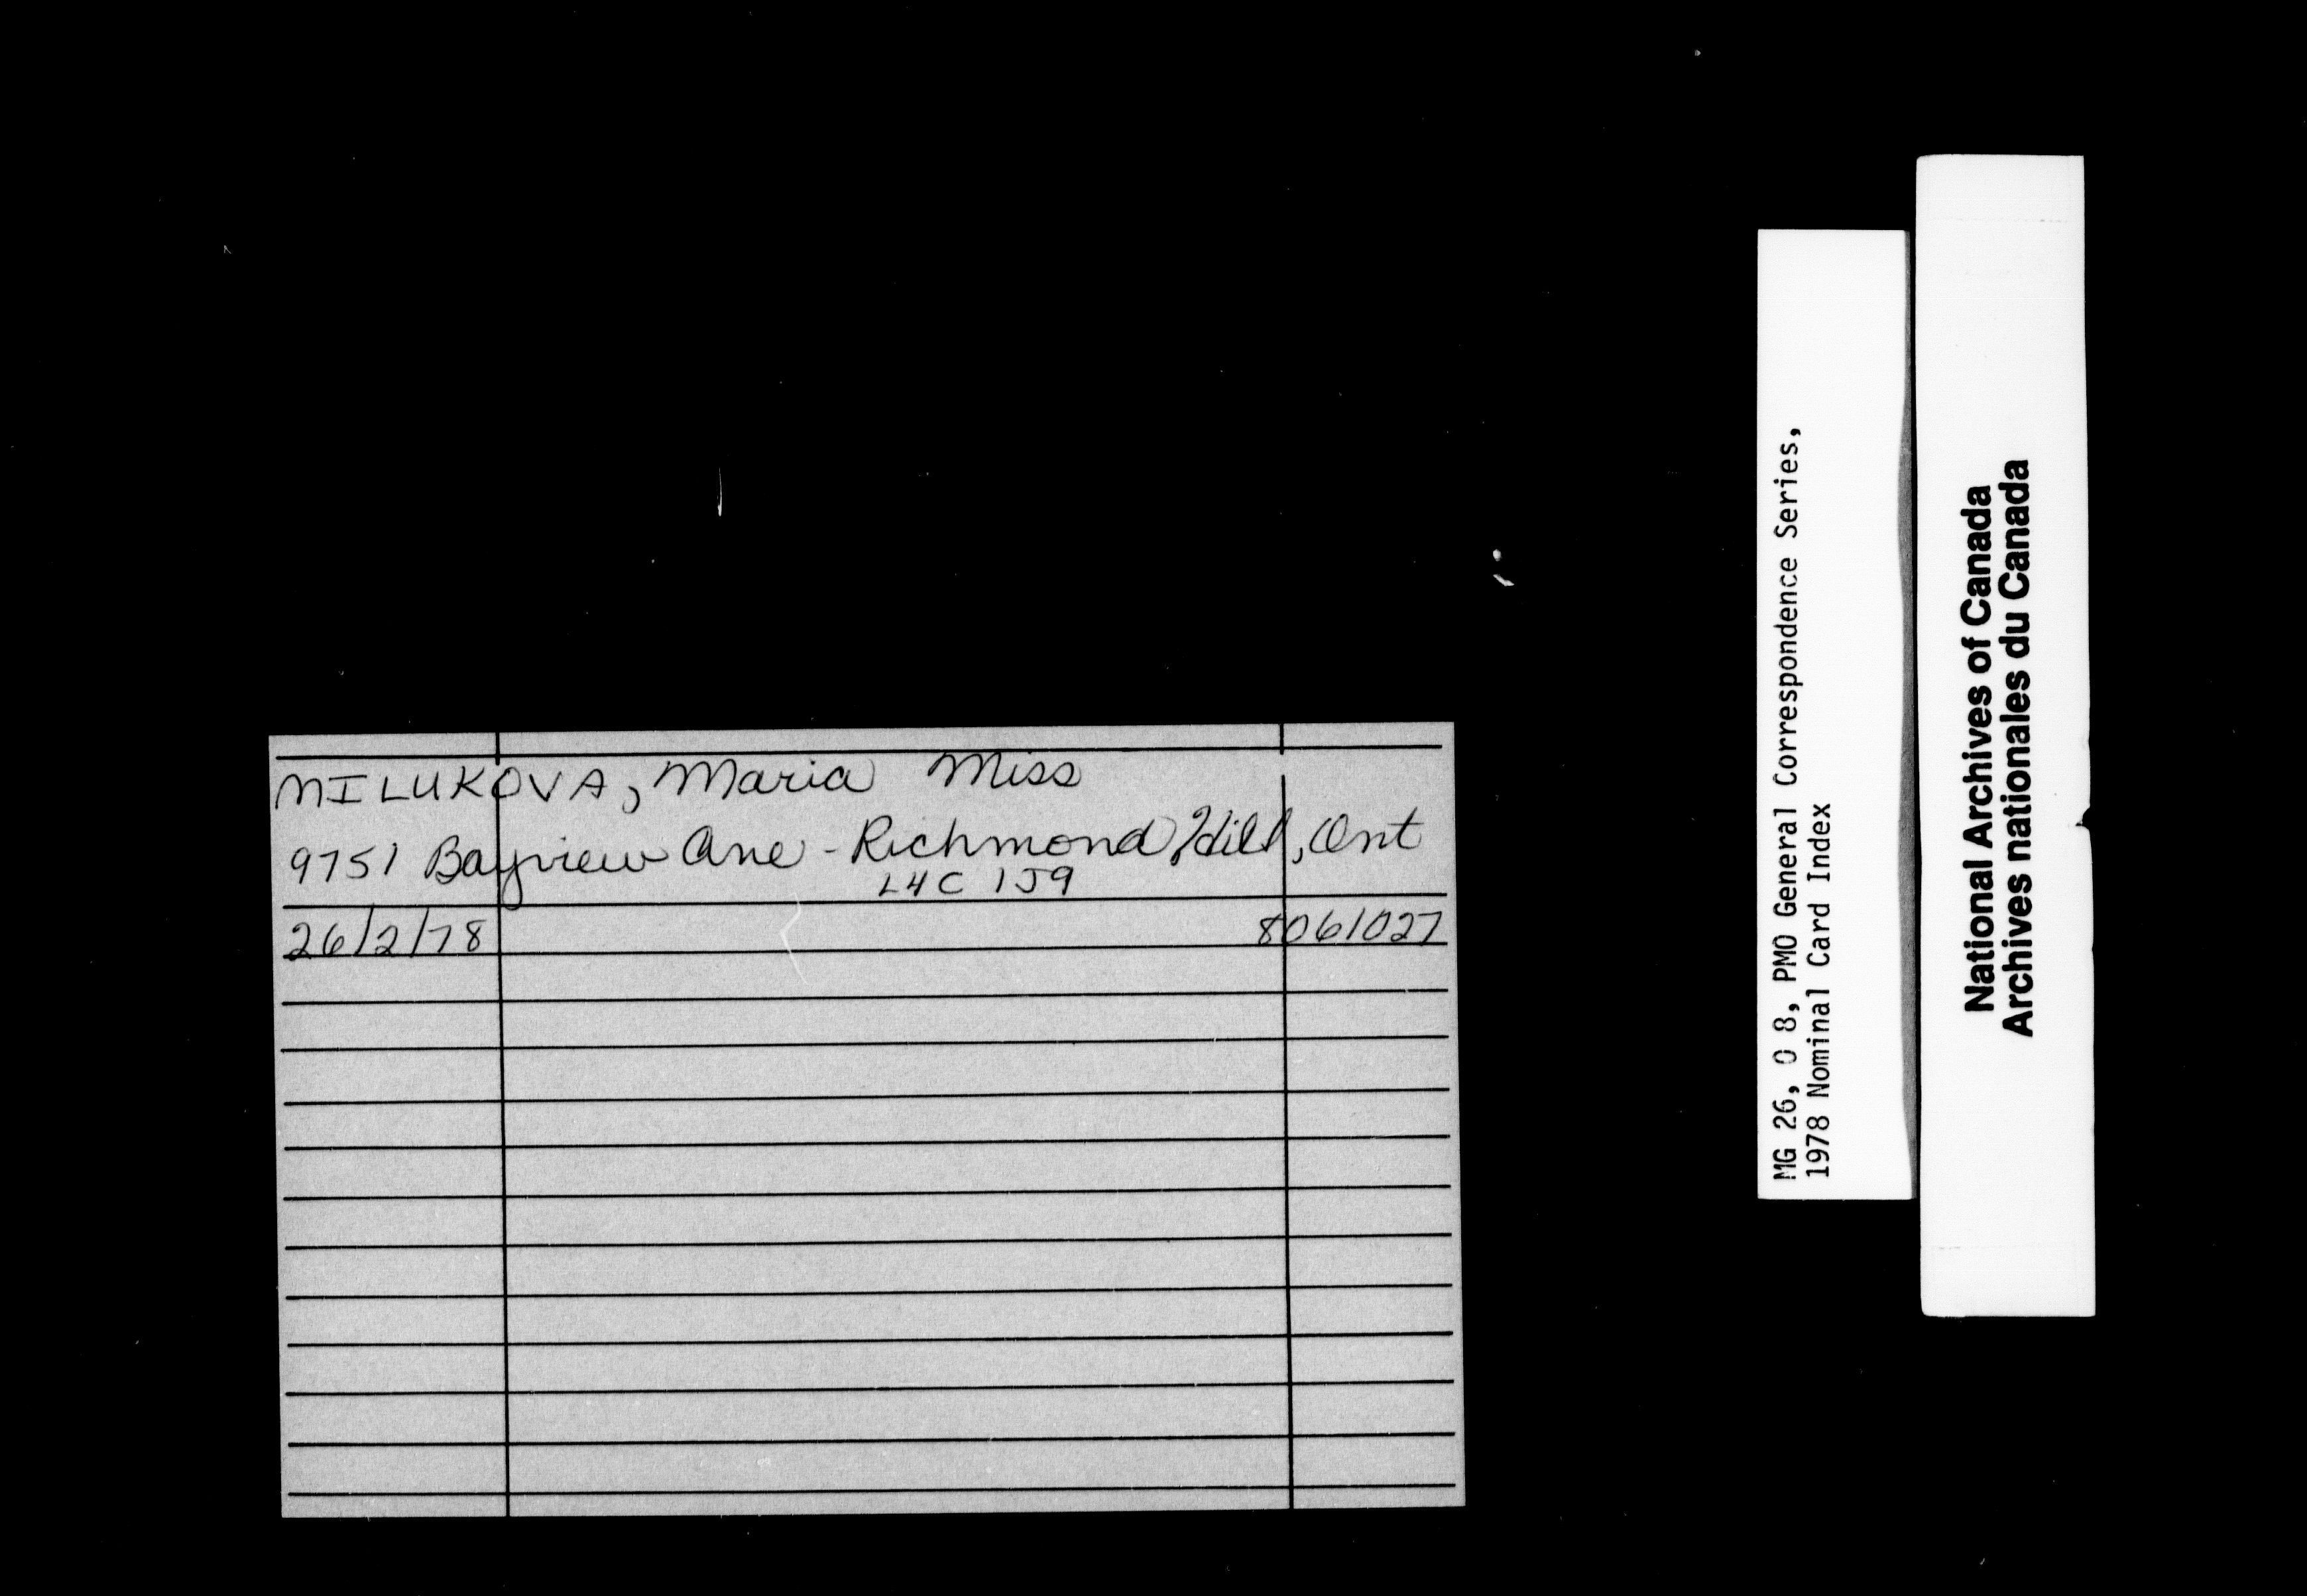 MILUKOVA, Maria Miss
9751 Bayview Ave - Richmond Hill, Ont
L4C 1J9
26/2/78 8061027
MG 26, O 8, PMO General Correspondence Series,
1978 Nominal Card Index
National Archives of Canada
Archives nationales du Canada